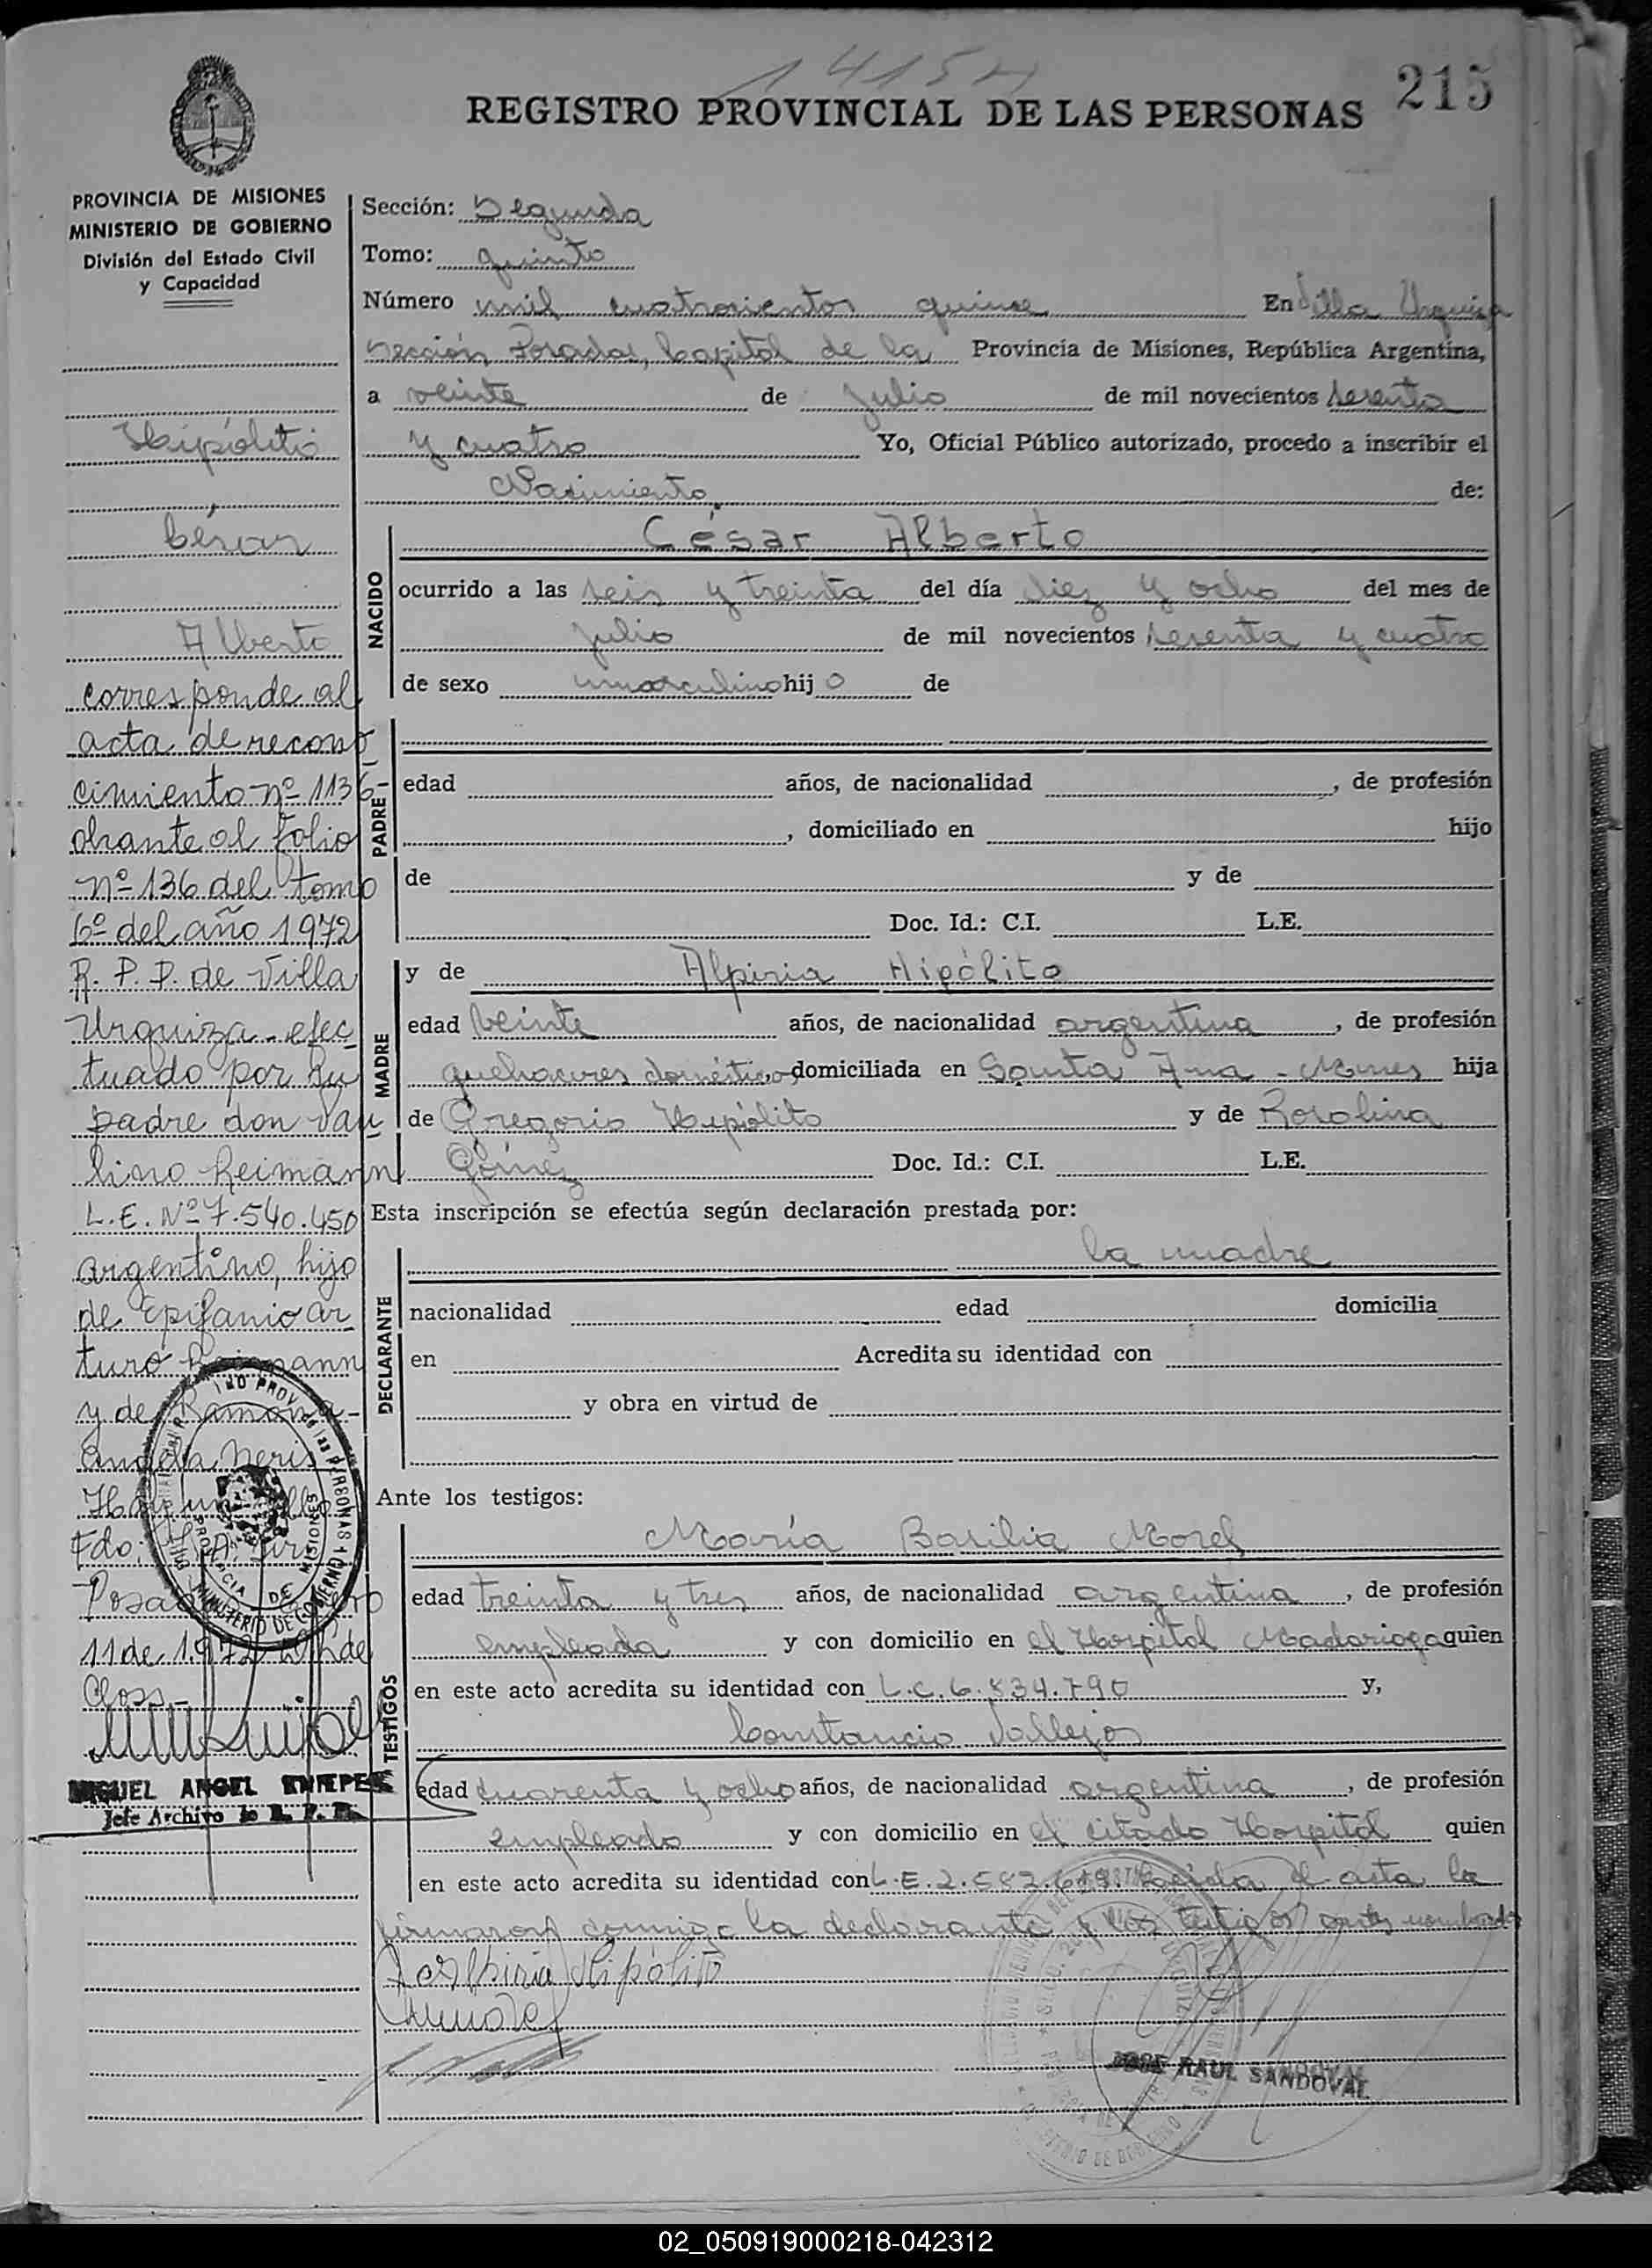 1415
215
REGISTRO PROVINCIAL DE LAS PERSONAS
PROVINCIA DE MISIONES
MINISTERIO DE GOBIERNO
División del Estado Civil
y Capacidad
Hipólito
César
Alberto
corresponde al
acta de recono
cimiento nº 1136
obrante al folio
nº 136 del tomo
6º del año 1972
R. P. P. de Villa
Urquiza - efec
tuado por su
padre don Pau
lino Reimann
L.E. Nº 7.540.450
argentino, hijo
de Epifanio Ar
turo Reimann
y de Ramona
Neris
Fdo:
11 de 1.972
Closs.-
MIGUEL ANGEL
Jefe Archivo
Sección: Segunda
Tomo: quinto
Número mil cuatrocientos quince En Villa Urquiza
sección Posadas, Capital de la Provincia de Misiones, República Argentina,
a veinte de julio de mil novecientos sesenta
y cuatro Yo, Oficial Público autorizado, procedo a inscribir el
Nacimiento de:
NACIDO
César Alberto
ocurrido a las seis y treinta del día diez y ocho del mes de
julio de mil novecientos sesenta y cuatro
de sexo masculino hijo de
PADRE
edad años, de nacionalidad , de profesión
, domiciliado en hijo
de y de
Doc. Id.: C.I. L.E.
MADRE
y de Alpiria Hipólito
edad veinte años, de nacionalidad argentina, de profesión
quehaceres domésticos domiciliada en Santa Ana - Mnes hija
de Gregorio Hipólito y de Rosalina
Gómez Doc. Id.: C.I. L.E.
Esta inscripción se efectúa según declaración prestada por:
DECLARANTE
la madre
nacionalidad edad domicilia
en Acredita su identidad con
y obra en virtud de
Ante los testigos:
TESTIGOS
María Basilia Morel
edad treinta y tres años, de nacionalidad argentina, de profesión
empleada y con domicilio en el Hospital Madariaga quien
en este acto acredita su identidad con L.C. 6.834.790 y,
Constancio Vallejos
edad cuarenta y ocho años, de nacionalidad argentina, de profesión
empleado y con domicilio en el citado Hospital quien
en este acto acredita su identidad con L.E. 2.582. Leída el acta la
firmaron conmigo la declarante y los testigos antes nombrados
Hipólito
JOSE RAUL SANDOVAL
02_050919000218-042312